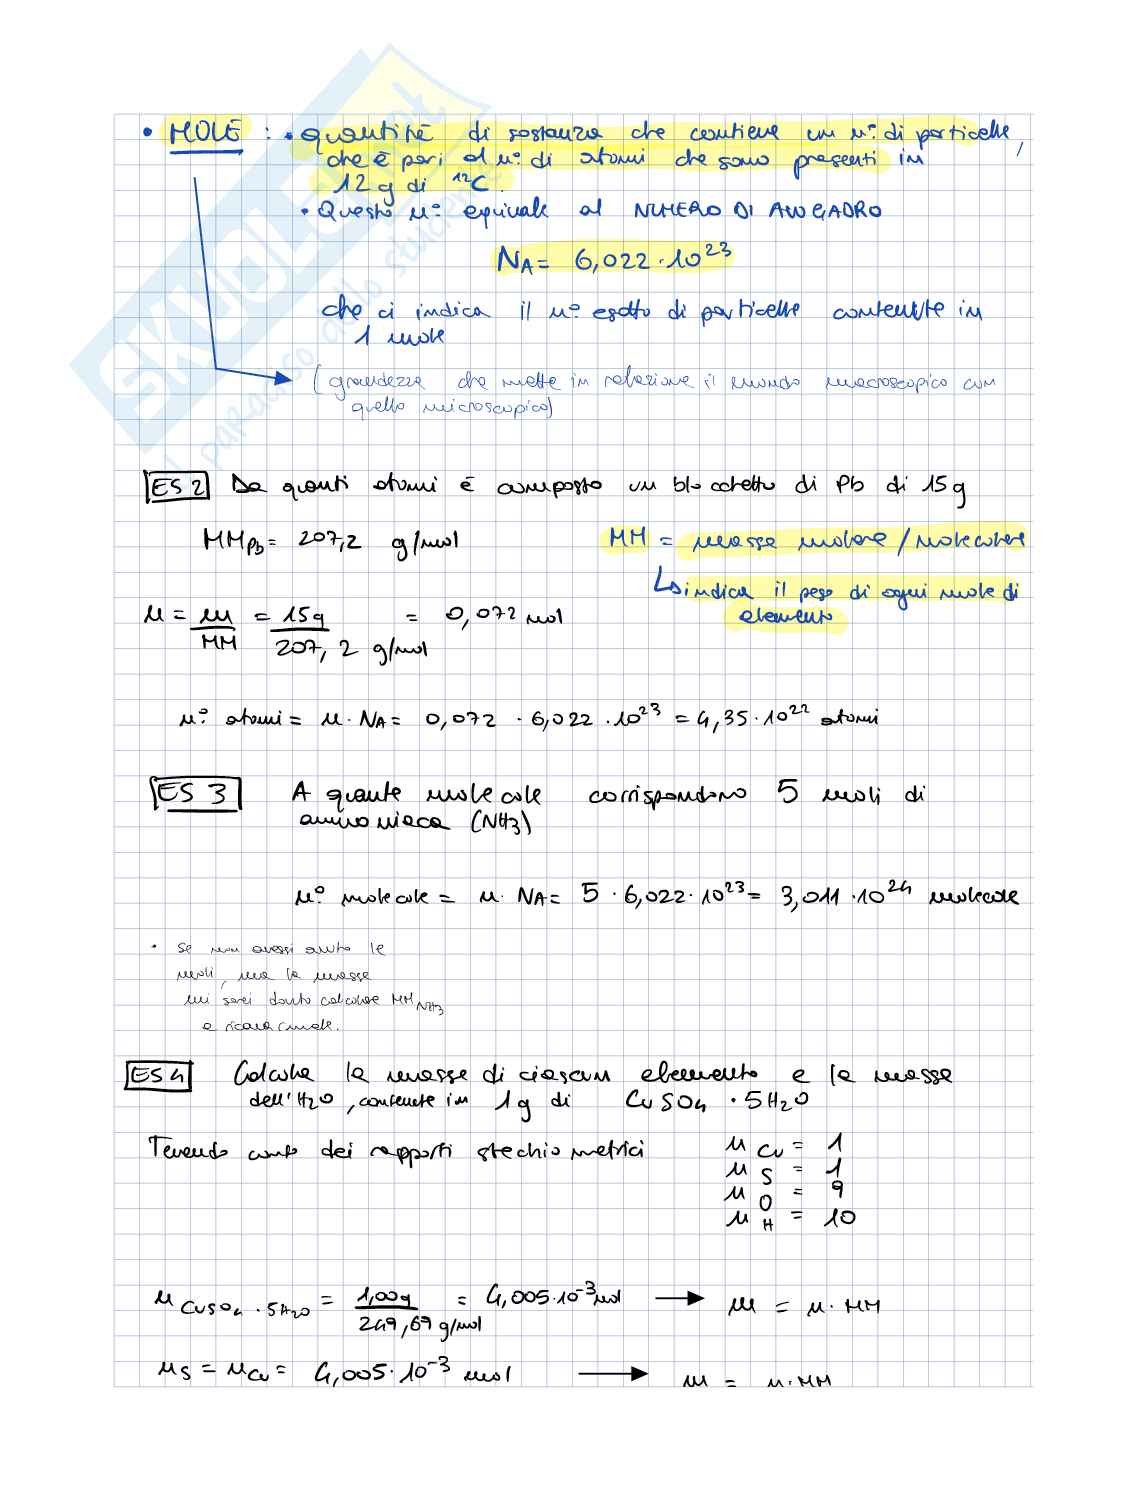 • MOLE : • quantità di sostanza che contiene un n° di particelle,
che è pari al n° di atomi che sono presenti in
12 g di ¹²C.
• Questo n° equivale al NUMERO DI AVOGADRO
NA = 6,022 · 10²³
che ci indica il n° esatto di particelle contenute in
1 mole
(grandezza che mette in relazione il mondo macroscopico con
quello microscopico)
ES 2 Da quanti atomi è composto un blocchetto di Pb di 15 g
MM Pb = 207,2 g/mol
MM = massa molare / molecolare
↳ indica il peso di ogni mole di
elemento
n = m/MM = 15g / 207,2 g/mol = 0,072 mol
n° atomi = n · NA = 0,072 · 6,022 · 10²³ = 4,35 · 10²² atomi
ES 3 A quante molecole corrispondono 5 moli di
ammoniaca (NH3)
n° molecole = n · NA = 5 · 6,022 · 10²³ = 3,011 · 10²⁴ molecole
• Se non avessi avuto le
moli, ma la massa
mi sarei dovuto calcolare MM NH3
e ricavarmele.
ES 4 Calcolare la massa di ciascun elemento e la massa
dell'H2O, contenute in 1g di CuSO4 · 5H2O
Tenendo conto dei rapporti stechiometrici
n Cu = 1
n S = 1
n O = 9
n H = 10
n CuSO4 · 5H2O = 1,00g / 249,69 g/mol = 4,005 · 10⁻³ mol → m = n · MM
nS = nCu = 4,005 · 10⁻³ mol → m = n · MM
SKUOLA.net
il paradiso dello studente